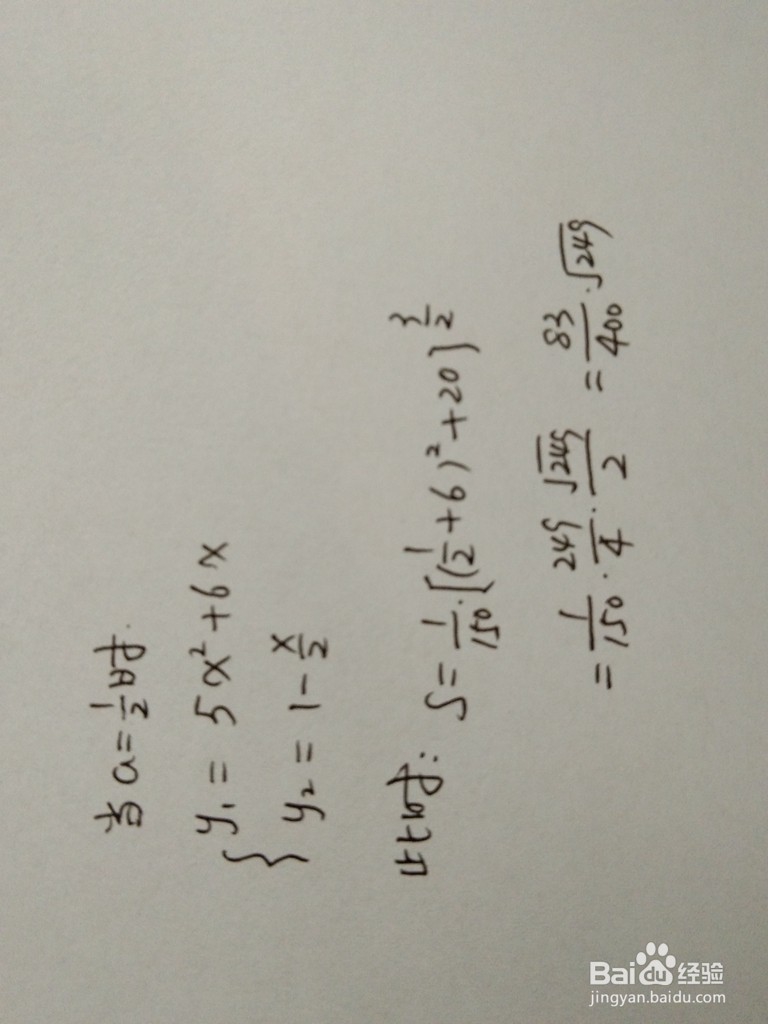 当a=1/2时.
{ y₁ = 5x²+6x
y₂ = 1-x/2
此时: S=1/150·[(1/2+6)²+20]^(3/2)
=1/150·249/4·√249/2=83/400·√249
Baidu经验
jingyan.baidu.com